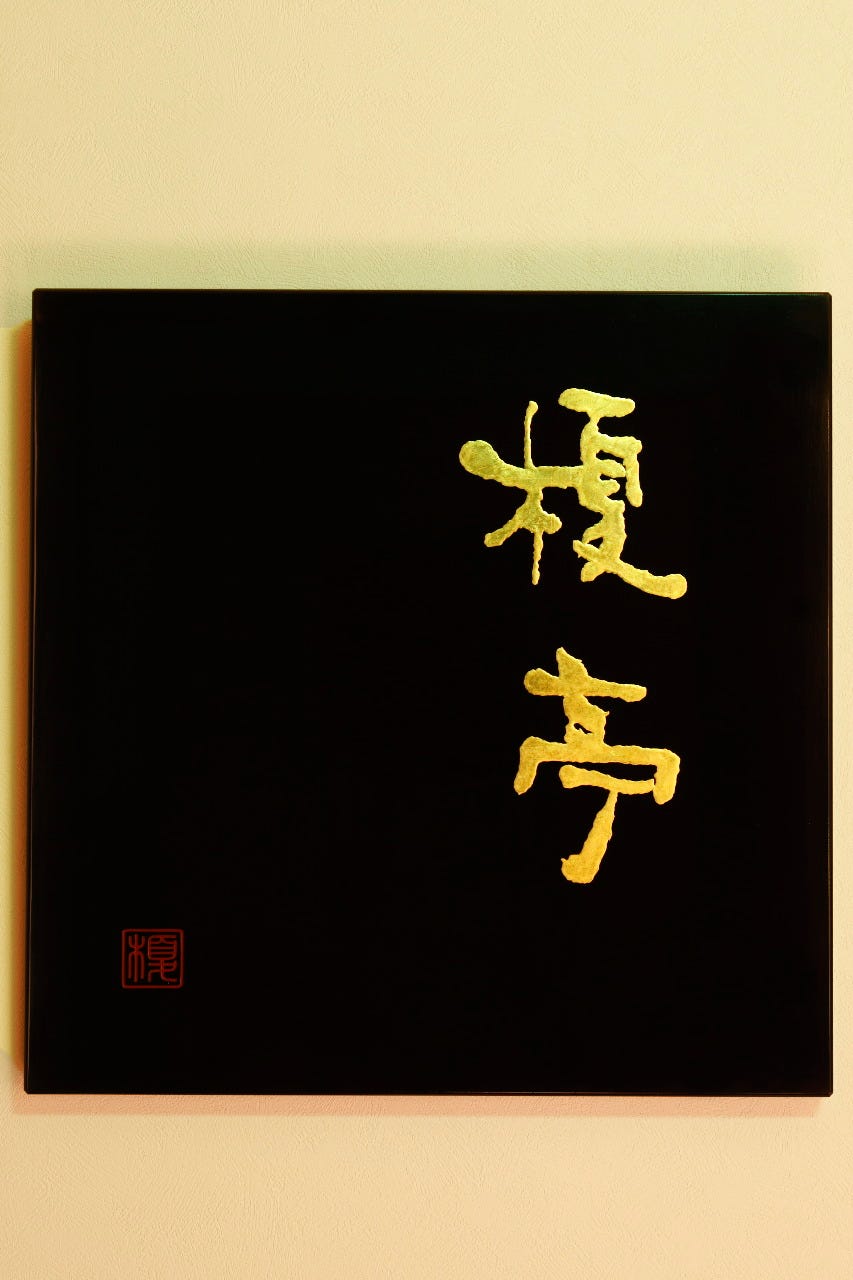 榎亭
榎